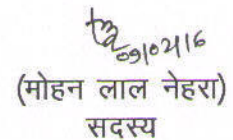 09/02/16
(मोहन लाल नेहरा)
सदस्य